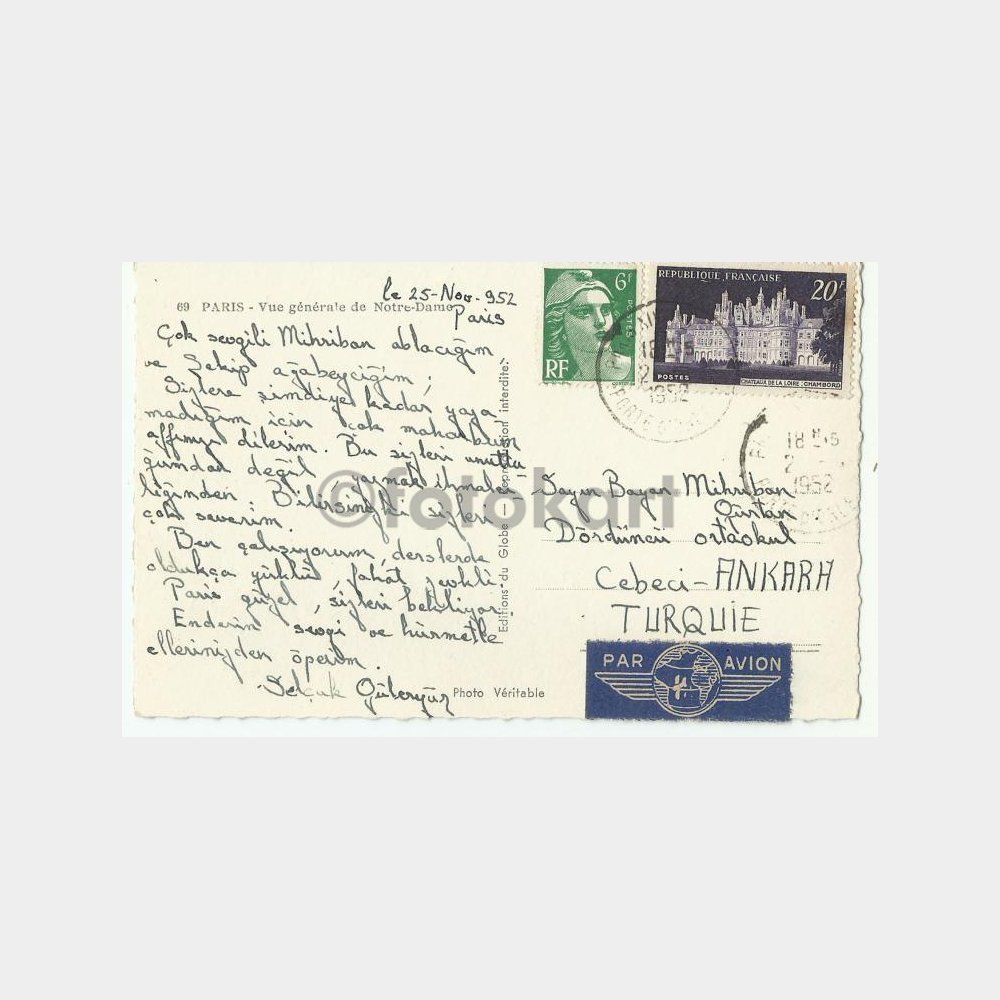 69 PARIS - Vue générale de Notre-Dame
le 25-Nov. 952
Paris
Çok sevgili Mihriban ablacığım
ve Şekip ağabeyciğim;
Sizlere şimdiye kadar yaza
madığım için çok mahcubum
affınızı dilerim. Bu sizleri unuttu
ğumdan değil yazmak ihmalci
liğinden. Bilirsinizki sizleri
çok severim.
Ben çalışıyorum, derslerde
oldukça yüklü, fakat zevkli.
Paris güzel, sizleri bekliyor.
Enderin sevgi ve hürmetle
ellerinizden öperim.
Selçuk
Photo Véritable
Editions du Globe
eproduction interdite
6F
POSTES
RF
REPUBLIQUE FRANÇAISE
20F
POSTES
CHATEAUX DE LA LOIRE : CHAMBORD
1952
1952
Sayın Bayan Mihriban
Gürtan
Dördüncü ortaokul
Cebeci - ANKARA
TURQUIE
PAR AVION
©fotokart